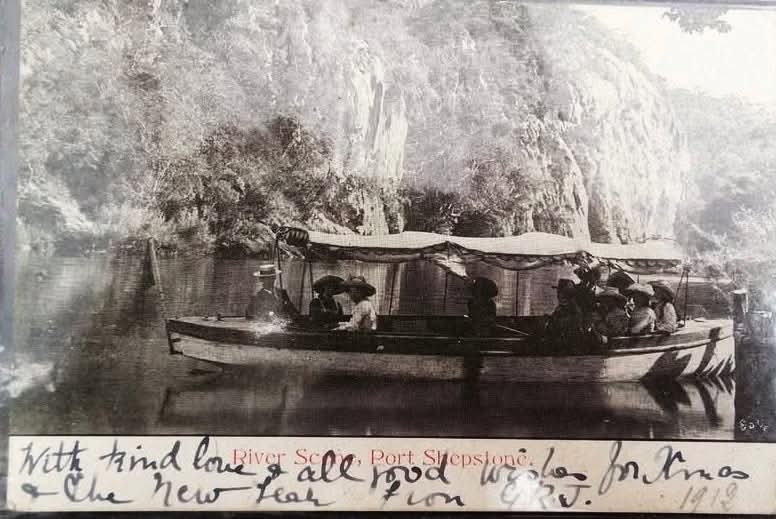 River Scene, Port Shepstone.
With kind love & all good wishes for Xmas
& the New Year from
1912